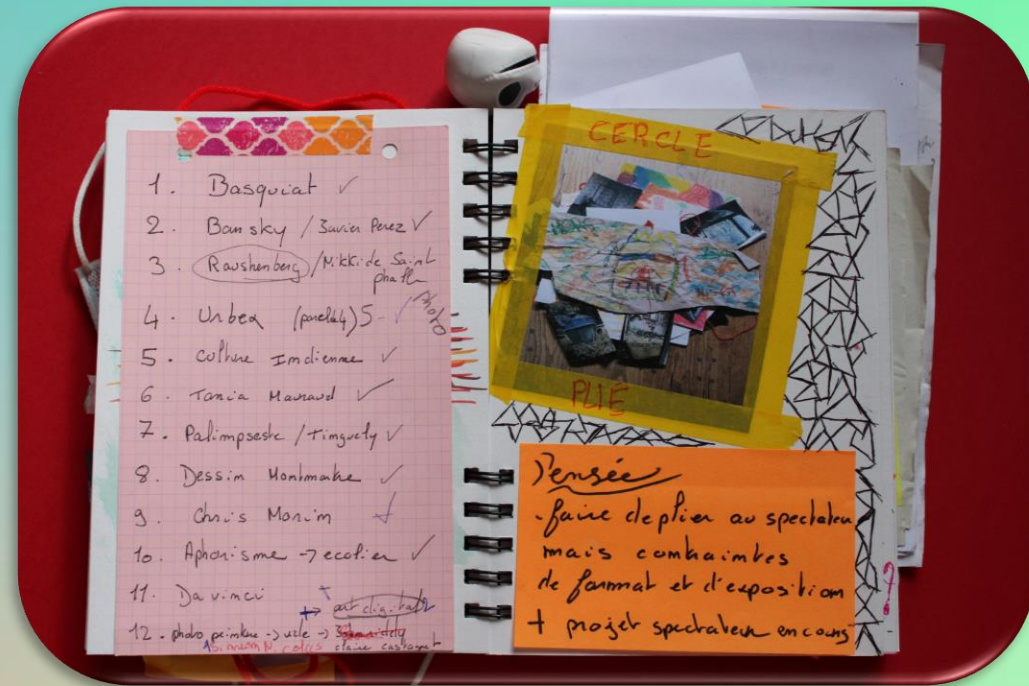 1. Basquiat ✓
2. Bansky / Xavier Perez ✓
3. Raushenberg / Nikki de Saint
phalle
4. Urbex 5 - ✓ photo
5. Culture Indienne ✓
6. Tania Mouraud ✓
7. Palimpseste / Tinguely ✓
8. Dessin Montmartre ✓
9. Chris Morin
10. Aphorisme -> ecolier ✓
11. Da vinci
+> art digital
12. photo peinture -> ->
CERCLE
PLIÉ
Pensée
. faire deplier au spectateur
mais contraintes
de format et d'exposition
+ projet spectateur en cours